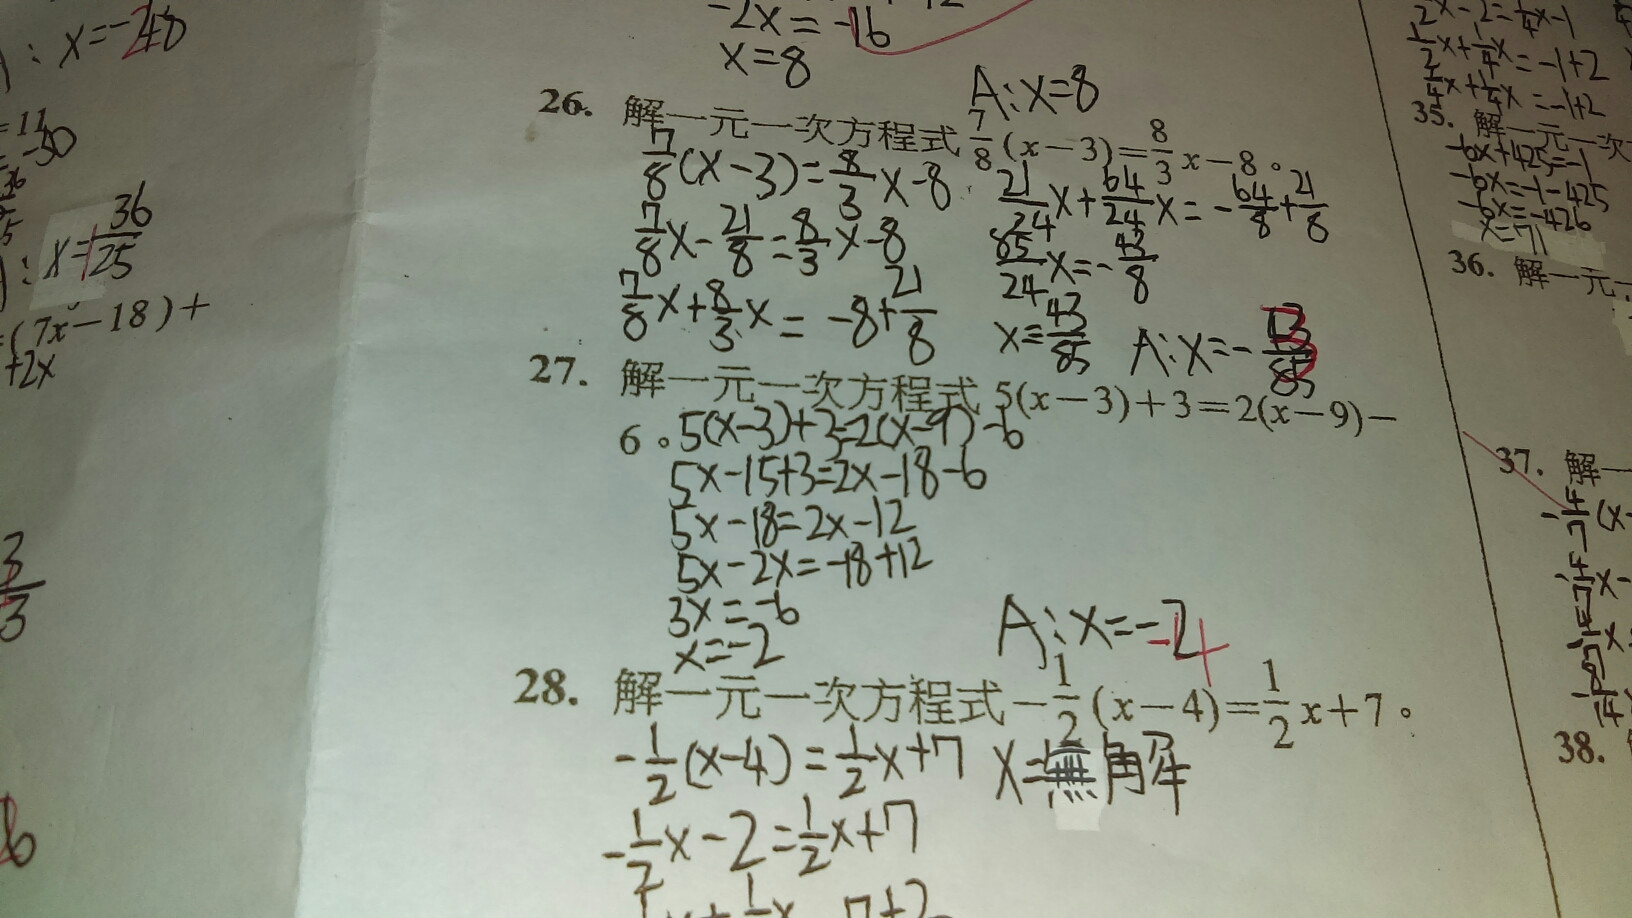 : x=-240
=11
=-50
x=36/25
=(7x-18)+
+2x
3/3
-2x=-16
x=8
A:x=8
26. 解一元一次方程式 7/8(x-3)=8/3x-8。
7/8(x-3)=8/3x-8
7/8x-21/8=8/3x-8
7/8x+8/3x=-8+21/8
21/24x+64/24x=-64/8+21/8
85/24x=-43/8
x=43/85
A:x=-13/85
27. 解一元一次方程式 5(x-3)+3=2(x-9)-
6。5(x-3)+3=2(x-9)-6
5x-15+3=2x-18-6
5x-18=2x-12
5x-2x=-18+12
3x=-6
x=-2
A:x=-2
28. 解一元一次方程式 -1/2(x-4)=1/2x+7。
-1/2(x-4)=1/2x+7
-1/2x-2=1/2x+7
x=無解
1/2x-2=1/4x-1
1/2x+1/4x=-1+2
35. 解一元一次
-6x+425=-1
-6x=-1-425
-6x=-426
x=71
36. 解一元
37. 解一
38.